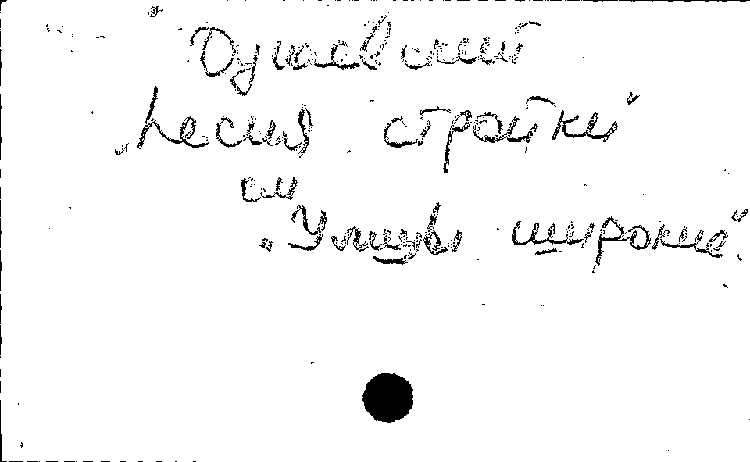 Дунаевский
„Песня стройки“
см
„Улицы широкие“.